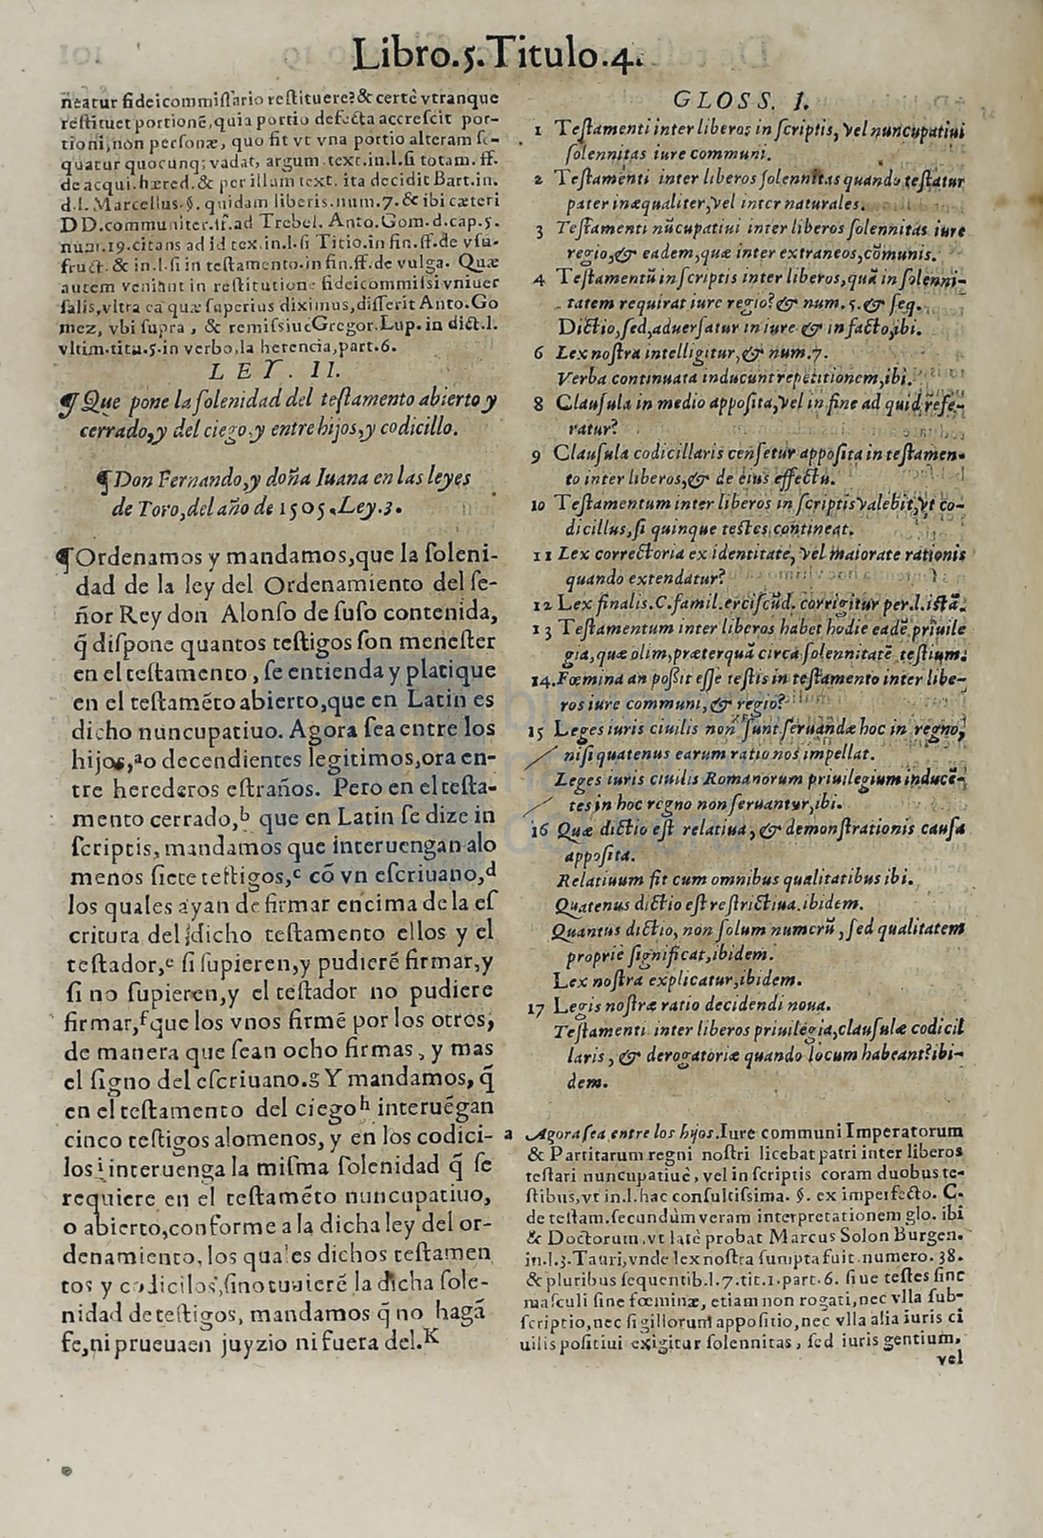 Libro.5.Titulo.4.
neatur fideicommiſſario reſtituere?& certè vtranque
reſtituet portionē,quia portio defecta accreſcit por-
tioni,non perſonæ, quo fit vt vna portio alteram ſe-
quatur quocunq; vadat, argum.text.in.l.ſi totam.ff.
de acqui.hæred.& per illum text. ita decidit Bart.in.
d.l. Marcellus.§. quidam liberis.num.7.& ibi cæteri
DD.communiter.ff.ad Trebel. Anto.Gom.d.cap.5.
num.19.citans ad id tex.in.l.ſi Titio.in fin.ff.de vſu-
fruct.& in.l.ſi in teſtamento.in fin.ff.de vulga. Quæ
autem veniant in reſtitutione fideicommiſsi vniuer
ſalis,vltra ea quæ ſuperius diximus,differit Anto.Go
mez, vbi ſupra , & remiſsiue Gregor.Lup.in dict.l.
vltim.titu.5.in verbo,la herencia,part.6.
LEY. II.
¶ Que pone la ſolenidad del teſtamento abierto y
cerrado,y del ciego,y entre hijos,y codicillo.
¶ Don Fernando,y doña Iuana en las leyes
de Toro,del año de 1505.Ley.3.
¶Ordenamos y mandamos,que la ſoleni-
dad de la ley del Ordenamiento del ſe-
ñor Rey don Alonſo de ſuſo contenida,
q̃ diſpone quantos teſtigos ſon meneſter
en el teſtamento , ſe entienda y platique
en el teſtamẽto abierto,que en Latin es
dicho nuncupatiuo. Agora ſea entre los
hijos,ᵃo decendientes legitimos,ora en-
tre herederos eſtraños. Pero en el teſta-
mento cerrado,ᵇ que en Latin ſe dize in
ſcriptis, mandamos que interuengan alo
menos ſiete teſtigos,ᶜ cõ vn eſcriuano,ᵈ
los quales ayan de firmar encima de la eſ
critura del dicho teſtamento ellos y el
teſtador,ᵉ ſi ſupieren,y pudierẽ firmar,y
ſi no ſupieren,y el teſtador no pudiere
firmar,ᶠque los vnos firmẽ por los otros,
de manera que ſean ocho firmas , y mas
el ſigno del eſcriuano.ᵍ Y mandamos, q̃
en el teſtamento del ciegoʰ interuẽgan
cinco teſtigos alomenos, y en los codici-
losⁱ interuenga la miſma ſolenidad q̃ ſe
requiere en el teſtamẽto nuncupatiuo,
o abierto,conforme a la dicha ley del or-
denamiento, los quales dichos teſtamen
tos y codicilos,ſino tuuierẽ la dicha ſole-
nidad de teſtigos, mandamos q̃ no hagã
fe,ni prueua en juyzio ni fuera del.ᴷ
GLOSS. I.
1 Teſtamenti inter liberos in ſcriptis, vel nuncupatiui
ſolennitas iure communi.
2 Teſtamenti inter liberos ſolennitas quando teſtatur
pater inæqualiter,vel inter naturales.
3 Teſtamenti nũcupatiui inter liberos ſolennitas iure
regio,& eadem,quæ inter extraneos,cõmunis.
4 Teſtamentũ in ſcriptis inter liberos,quã in ſolenni-
tatem requirat iure regio?& num.5.& ſeq.
Dictio,ſed,aduerſatur in iure & in facto,ibi.
6 Lex noſtra intelligitur,& num.7.
Verba continuata inducunt repetitionem,ibi.
8 Clauſula in medio appoſita,vel in fine ad quid refe-
ratur?
9 Clauſula codicillaris cenſetur appoſita in teſtamen-
to inter liberos,& de eius effectu.
10 Teſtamentum inter liberos in ſcriptis valebit,vt co-
dicillus,ſi quinque teſtes contineat.
11 Lex correctoria ex identitate, vel maiorate rationis
quando extendatur?
12 Lex finalis.C.famil.erciſcũd. corrigitur per.l.iſtã.
13 Teſtamentum inter liberos habet hodie eadẽ priuile
gia,quæ olim,præterquã circa ſolennitatẽ teſtium.
14.Fœmina an poſsit eſſe teſtis in teſtamento inter libe-
ros iure communi,& regio?
15 Leges iuris ciuilis non ſunt ſeruandæ hoc in regno,
niſi quatenus earum ratio nos impellat.
Leges iuris ciuilis Romanorum priuilegium inducẽ-
tes in hoc regno non ſeruantur,ibi.
16 Quæ dictio eſt relatiua , & demonſtrationis cauſa
appoſita.
Relatiuum fit cum omnibus qualitatibus ibi.
Quatenus dictio eſt reſtrictiua.ibidem.
Quantus dictio, non ſolum numerũ , ſed qualitatem
propriè ſignificat,ibidem.
Lex noſtra explicatur,ibidem.
17 Legis noſtræ ratio decidendi noua.
Teſtamenti inter liberos priuilegia,clauſulæ codicil
laris , & derogatoriæ quando locum habeant?ibi-
dem.
a Agora ſea entre los hijos.Iure communi Imperatorum
& Partitarum regni noſtri licebat patri inter liberos
teſtari nuncupatiuè, vel in ſcriptis coram duobus te-
ſtibus,vt in.l.hac conſultiſsima. §. ex imperfecto. C.
de teſtam.ſecundùm veram interpretationem glo. ibi
& Doctorum,vt latè probat Marcus Solon Burgen.
in.l.3.Tauri,vnde lex noſtra ſumpta fuit.numero.38.
& pluribus ſequentib.l.7.tit.1.part.6. ſiue teſtes ſine
maſculi ſine fœminæ, etiam non rogati,nec vlla ſub-
ſcriptio,nec ſigillorum appoſitio,nec vlla alia iuris ci
uilis poſitiui exigitur ſolennitas , ſed iuris gentium,
vel